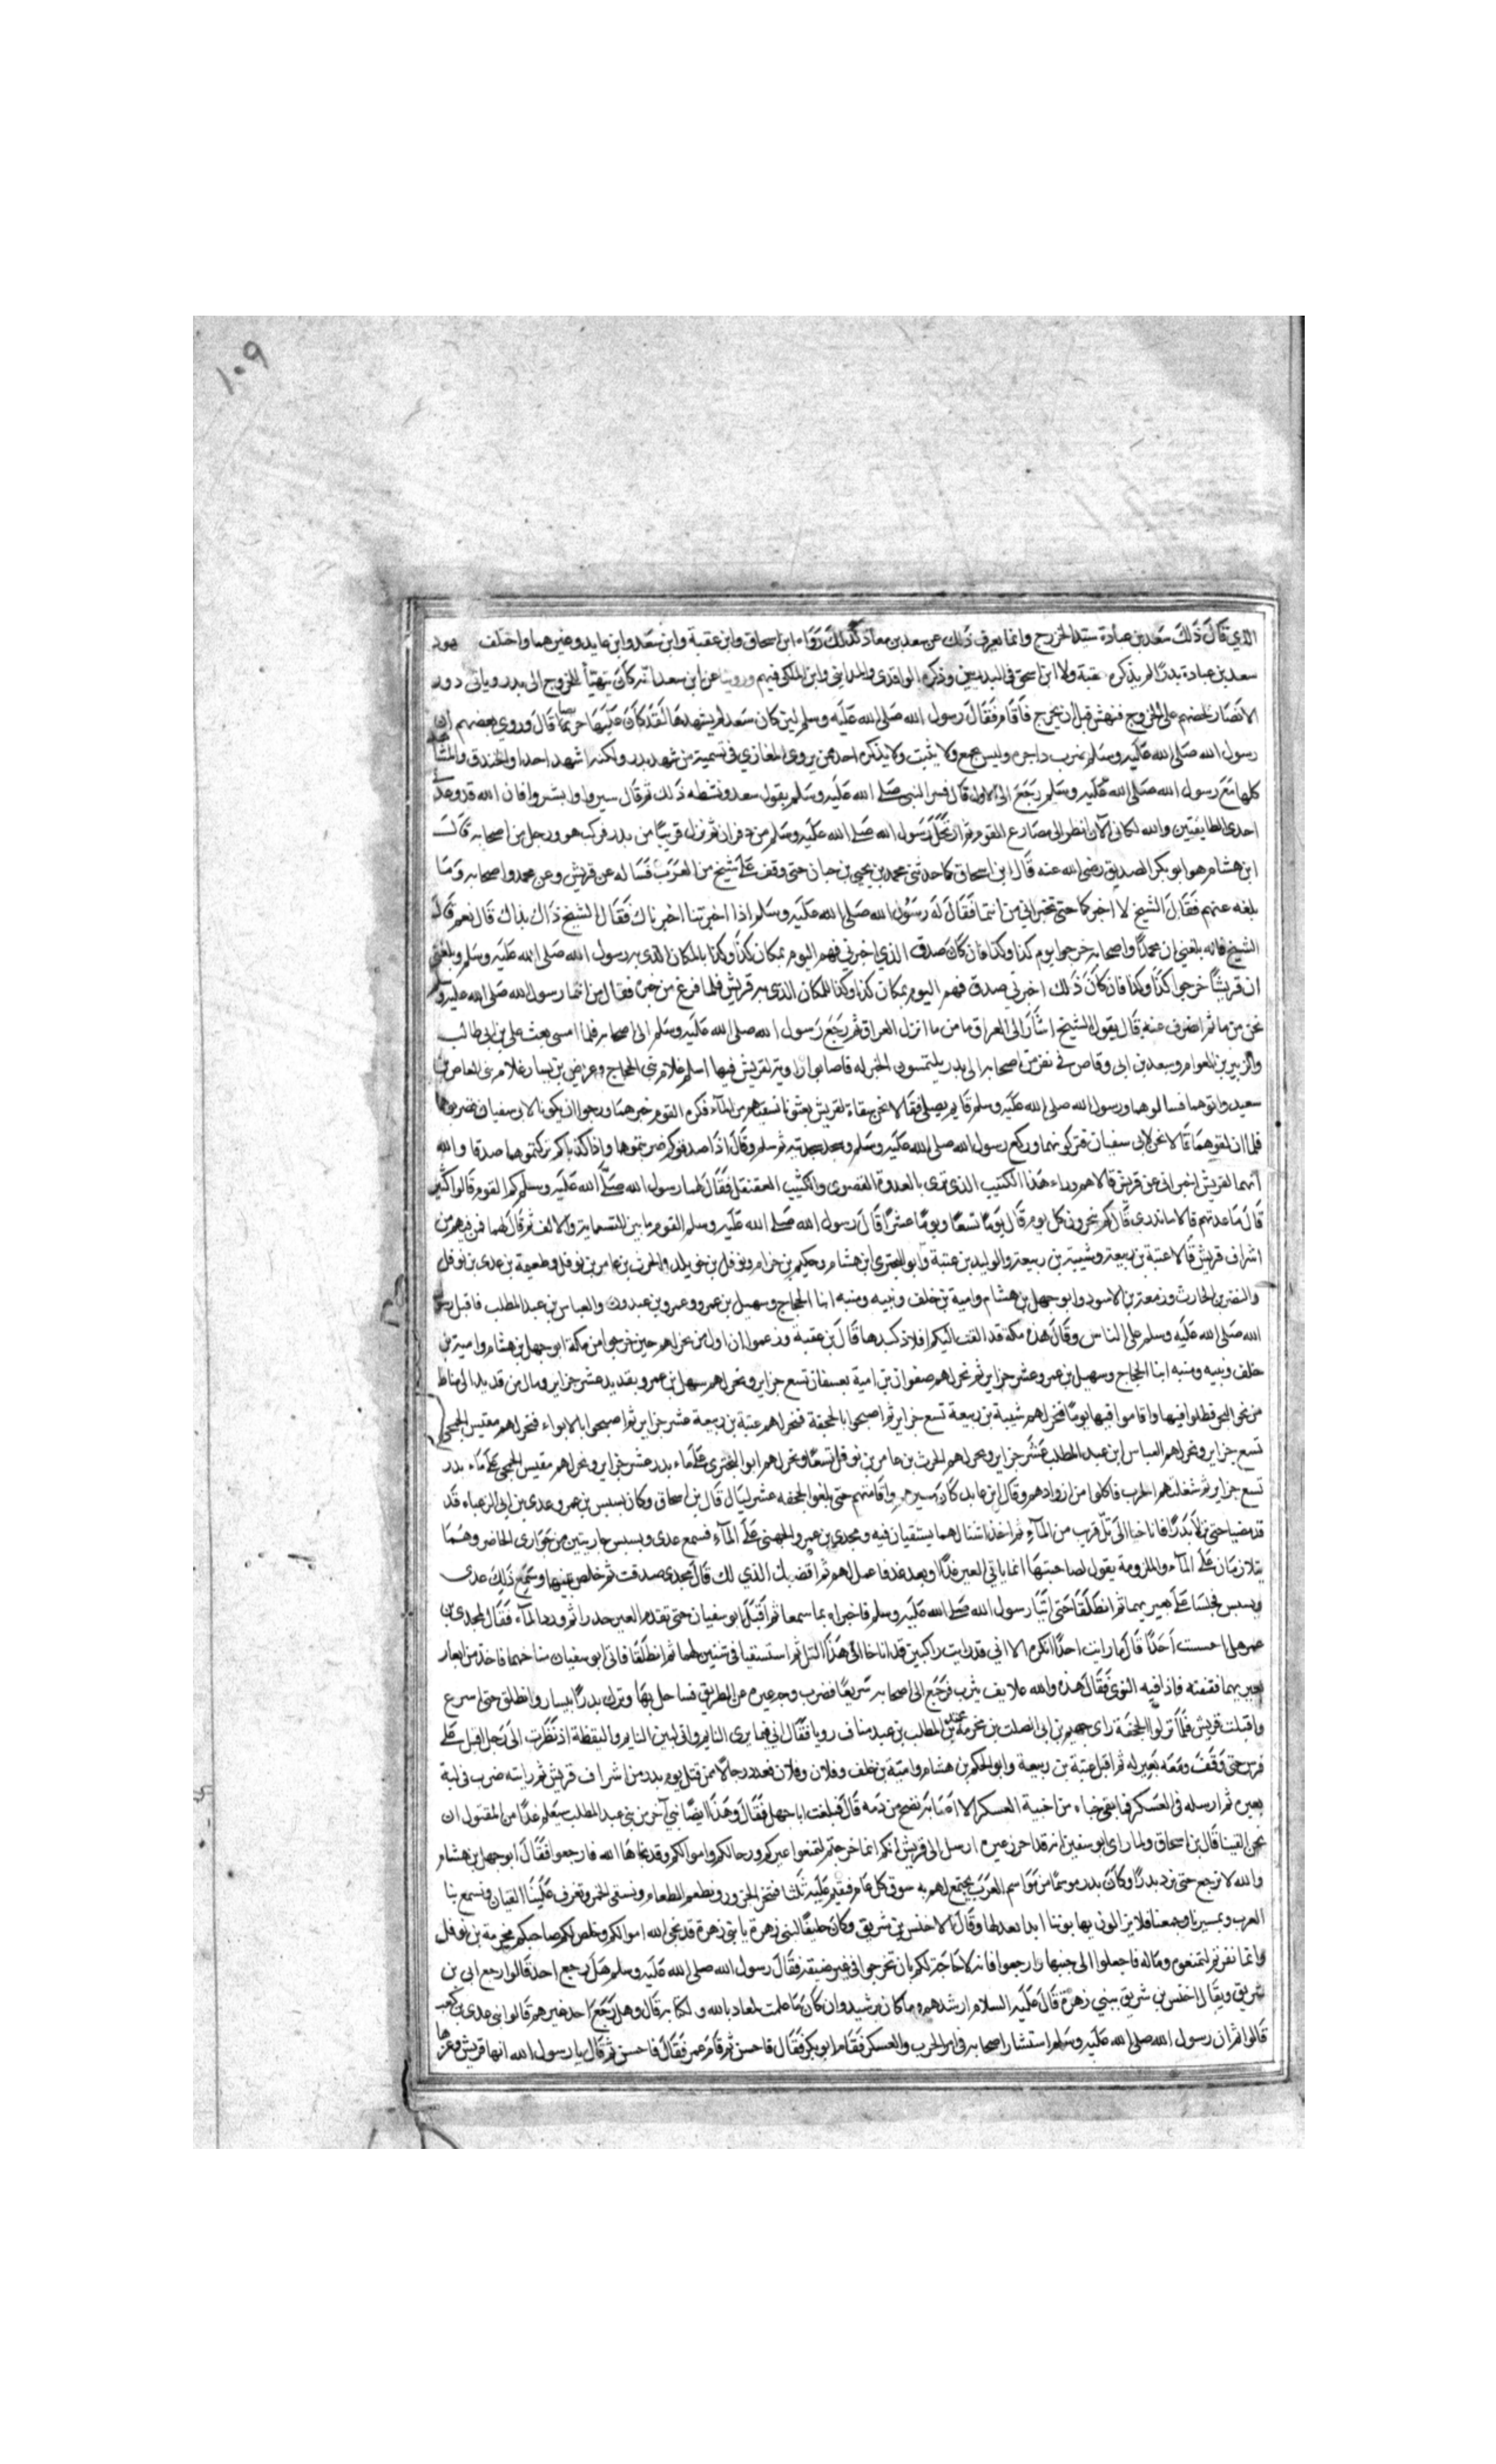 ١٠٩
الذي قال ذلك سعد بن عبادة سيد الخزرج وانما يعرف ذلك عن سعد بن معاذ كذلك رواه ابن اسحاق وابن عقبة وابن سعد وابن عايد وغيرهما واختلف في شهود
سعد بن عبادة بدرا لم يذكره عقبة ولا ابن اسحق في البدريين وذكره الواقدي والمدايني وابن الكلبي فيهم وروينا عن ابن سعد انه كان يتهيأ للخروج الى بدر وياتي دور
الانصار يحضهم على الخروج فنهش قبل ان يخرج فاقام فقال رسول الله صلى الله عليه وسلم لين كان سعد لم يشهدها لقد كان عليها حريصا قال وروي بعضهم ان
رسول الله صلى الله عليه وسلم ضرب له واجره وليس بمجمع ولا يثبت ولا يذكره احد ممن يروي المغازي في تسمية من شهد بدر ولكنه اشهد احدا والخندق والمشاهد
كلها مع رسول الله صلى الله عليه وسلم رجع الى الاول قال فسر النبي صلى الله عليه وسلم بقول سعد ونشطه ذلك ثم قال سيروا وابشروا فان الله قد وعدني
احدى الطايفتين والله لكاني الآن انظر الى مصارع القوم ثم ارتحل رسول الله صلى الله عليه وسلم من ذفران ثم نزل قريبا من بدر فركب هو ورجل من اصحابه قال
ابن هشام هو ابو بكر الصديق رضي الله عنه قال ابن اسحاق كما حدثني محمد بن يحيى بن حبان حتى وقف على شيخ من العرب فساله عن قريش وعن محمد واصحابه وما
بلغه عنهم فقال الشيخ لا اخبركما حتى تخبراني من انتما فقال له رسول الله صلى الله عليه وسلم اذا اخبرتنا اخبرناك فقال الشيخ ذاك بذاك قال نعم قال
الشيخ فانه بلغني ان محمدا واصحابه خرجوا يوم كذا وكذا فان كان صدق الذي اخبرني فهم اليوم بمكان كذا وكذا بالمكان الذي به رسول الله صلى الله عليه وسلم وبلغني
ان قريشا خرجوا كذا وكذا فان كان ذلك اخبرني صدق فهم اليوم بمكان كذا وكذا للمكان الذي به قريش فلما فرغ من خبره فقال من انتما رسول الله صلى الله عليه وسلم
نحن من ما ثم انصرف عنه قال يقول الشيخ اشار الى العراق ما من ما انزل العراق ثم رجع رسول الله صلى الله عليه وسلم الى اصحابه فلما امسى بعث علي بن ابي طالب
والزبير بن العوام وسعد بن ابي وقاص في نفر من اصحابه الى بدر يلتمسون الخبر له فاصابوا راوية لقريش فيها اسلم غلام بني الحجاج وعريض بن يسار غلام بني العاص بن
سعيد واتوهما فسالوهما ورسول الله صلى الله عليه وسلم قايم يصلي فقالا نحن سقاة لقريش بعثونا نسقيهم من الماء فكره القوم خبرهما ورجوا ان يكونا لابي سفيان فضربوهما
فلما اذلقوهما قالا نحن لابي سفيان فتركوهما وركع رسول الله صلى الله عليه وسلم وسجد سجدتيه ثم سلم وقال اذا صدقوكم ضربتموها واذا كذباكم تركتموهما صدقا والله
انهما لقريش اخبراني عن قريش قالا هم وراء هذا الكثيب الذي ترى بالعدوة القصوى والكثيب العقنقل فقال لهما رسول الله صلى الله عليه وسلم كم القوم قالوا كثير
قال ما عدتهم قالا ما ندري قال كم ينحرون كل يوم قال يوما تسعا ويوما عشرا قال رسول الله صلى الله عليه وسلم القوم ما بين التسماية والالف ثم قال لهما فمن فيهم من
اشراف قريش قالا عتبة بن ربيعة وشيبة بن ربيعة والوليد بن عتبة وابو البحتري ابن هشام وحكيم بن حزام ونوفل بن خويلد والحرث بن عامر بن نوفل وطعيمة بن عدي بن نوفل
والنضر بن الحارث وزمعة بن الاسود وابو جهل بن هشام وامية بن خلف ونبيه ومنبه ابنا الحجاج وسهيل بن عمرو وعمرو بن عبد ود والعباس بن عبد المطلب فاقبل رسول
الله صلى الله عليه وسلم على الناس وقال هذه مكة قد القت اليكم افلاذ كبدها قال بن عقبة وزعموا ان اول من نحر لهم حين خرجوا من مكة ابو جهل بن هشام وامية بن
خلف ونبيه ومنبه ابنا الحجاج وسهيل بن عمرو عشر جزاير ثم نحر لهم صفوان بن امية بعسفان تسع جزاير ونحر لهم سهل بن عمرو بقديد عشر جزاير ومال من قديد الى مناط
من نحو البحر فظلوا فيها واقاموا فيها يوما فنحر لهم شيبة بن ربيعة تسع جزاير ثم اصبحوا بالجحفة فنحر لهم عتبة بن ربيعة عشر جزاير ثم اصبحوا بالابواء فنحر لهم مقيس الجمحي
تسع جزاير ونحر لهم العباس ابن عبد المطلب عشر جزاير ونحر لهم الحرث بن عامر بن نوفل تسعا ونحر لهم ابو البختري على ماء بدر عشر جزاير ونحر لهم مقيس الجمحي على ماء بدر
تسع جزاير ثم شغلتهم الحرب فاكلوا من ازوادهم وقال ابن عايد كان مسيرهم واقامتهم حتى بلغوا الجحفه عشر ليال قال بن اسحاق وكان بسبس بن عمرو وعدي بن ابي الزعباء قد
قد مضيا حتى نزلا بدرا فاناخا الى تل قرب من الماء ثم اخذا شنا لهما يستقيان فيه ومجدي بن عمرو الجهني على الماء فسمع عدي وبسبس جاريتين من جواري الحاضر وهما
يتلازمان على الماء والملزومة يقول لصاحبتها انما ياتي العير غدا او بعد غد فاعمل لهم ثم اقضيك الذي لك قال مجدي صدقت ثم خلص بينهما وسمع ذلك عدي
وبسبس فجلسا على بعيريهما ثم انطلقا حتى اتيا رسول الله صلى الله عليه وسلم فاخبراه بما سمعا ثم اقبل ابو سفيان حتى تقدم العير حذرا ثم ورد الماء فقال لمجدي بن
عمرو هل احسست احدا قال ما رايت احدا انكره الا اني قد رايت راكبين قد اناخا الى هذا التل ثم استسقيا في شنين لهما ثم انطلقا فاتى ابو سفيان مناخهما فاخذ من ابعار
بعيريهما ففتته فاذا فيه النوى فقال هذه والله علايف يثرب فرجع الى اصحابه سريعا فضرب وجه عيره عن الطريق فساحل بها وترك بدرا بيسار وانطلق حتى اسرع
واقبلت قريش فلما نزلوا الجحفة راى جهيم بن ابي الصلت بن مخرمة بن المطلب بن عبد مناف رويا فقال اني فيما يرى النايم واني لبين النايم واليقظة اذ نظرت الى رجل اقبل على
فرس حتى وقف ومعه بعير له ثم اقبل عتبة بن ربيعة وابو الحكم بن هشام وامية بن خلف وفلان وفلان فعدد رجالا ممن قتل يوم بدر من اشراف قريش ثم رايته ضرب في لبة
بعيره ثم ارسله في العسكر فما بقي خباء من اخبية العسكر الا اصابه نضح من دمه قال فبلغت ابا جهل فقال وهذا ايضا نبي آخر من بني عبد المطلب سيعلم غدا من المقتول ان
نحن القينا قال بن اسحاق ولما راى ابو سفين انه قد احرز عيره ارسل الى قريش انكم انما خرجتم لتمنعوا عيركم ورحالكم واموالكم وقد نجاها الله فارجعوا فقال ابو جهل بن هشام
والله لا نرجع حتى نرد بدرا وكان بدر موسما من مواسم العرب يجتمع لهم به سوق كل عام فنقيم عليه ثلثا فننحر الجزور ونطعم الطعام ونسقي الخمر وتعزف علينا القيان وتسمع بنا
العرب وبمسيرنا وجمعنا فلا يزالون يهابوننا ابدا بعدها وقال الاخنس بن شريق وكان حليفا لبني زهرة يا بني زهرة قد نجى الله اموالكم وخلص لكم صاحبكم مخرمة بن نوفل
وانما نفرتم لتمنعوه وماله فاجعلوا الى جنبها وارجعوا فانه لا حاجة لكم بان تخرجوا في غير ضيقه فقال رسول الله صلى الله عليه وسلم هل رجع احد قالوا رجع ابي بن
شريق ويقال اخنس بن شريق ببني زهرة قال عليه السلام ارشدهم وما كان برشيد وان كان ما علمت لمعاد بالله ولكتابه قال وهل رجع احد غيرهم قالوا بنى عدي بن كعب
قالوا ثم ان رسول الله صلى الله عليه وسلم استشار اصحابه في امر الحرب والعسكر فقام ابو بكر فقال فاحسن ثم قام عمر فقال فاحسن ثم قال يا رسول الله انها قريش وعزها